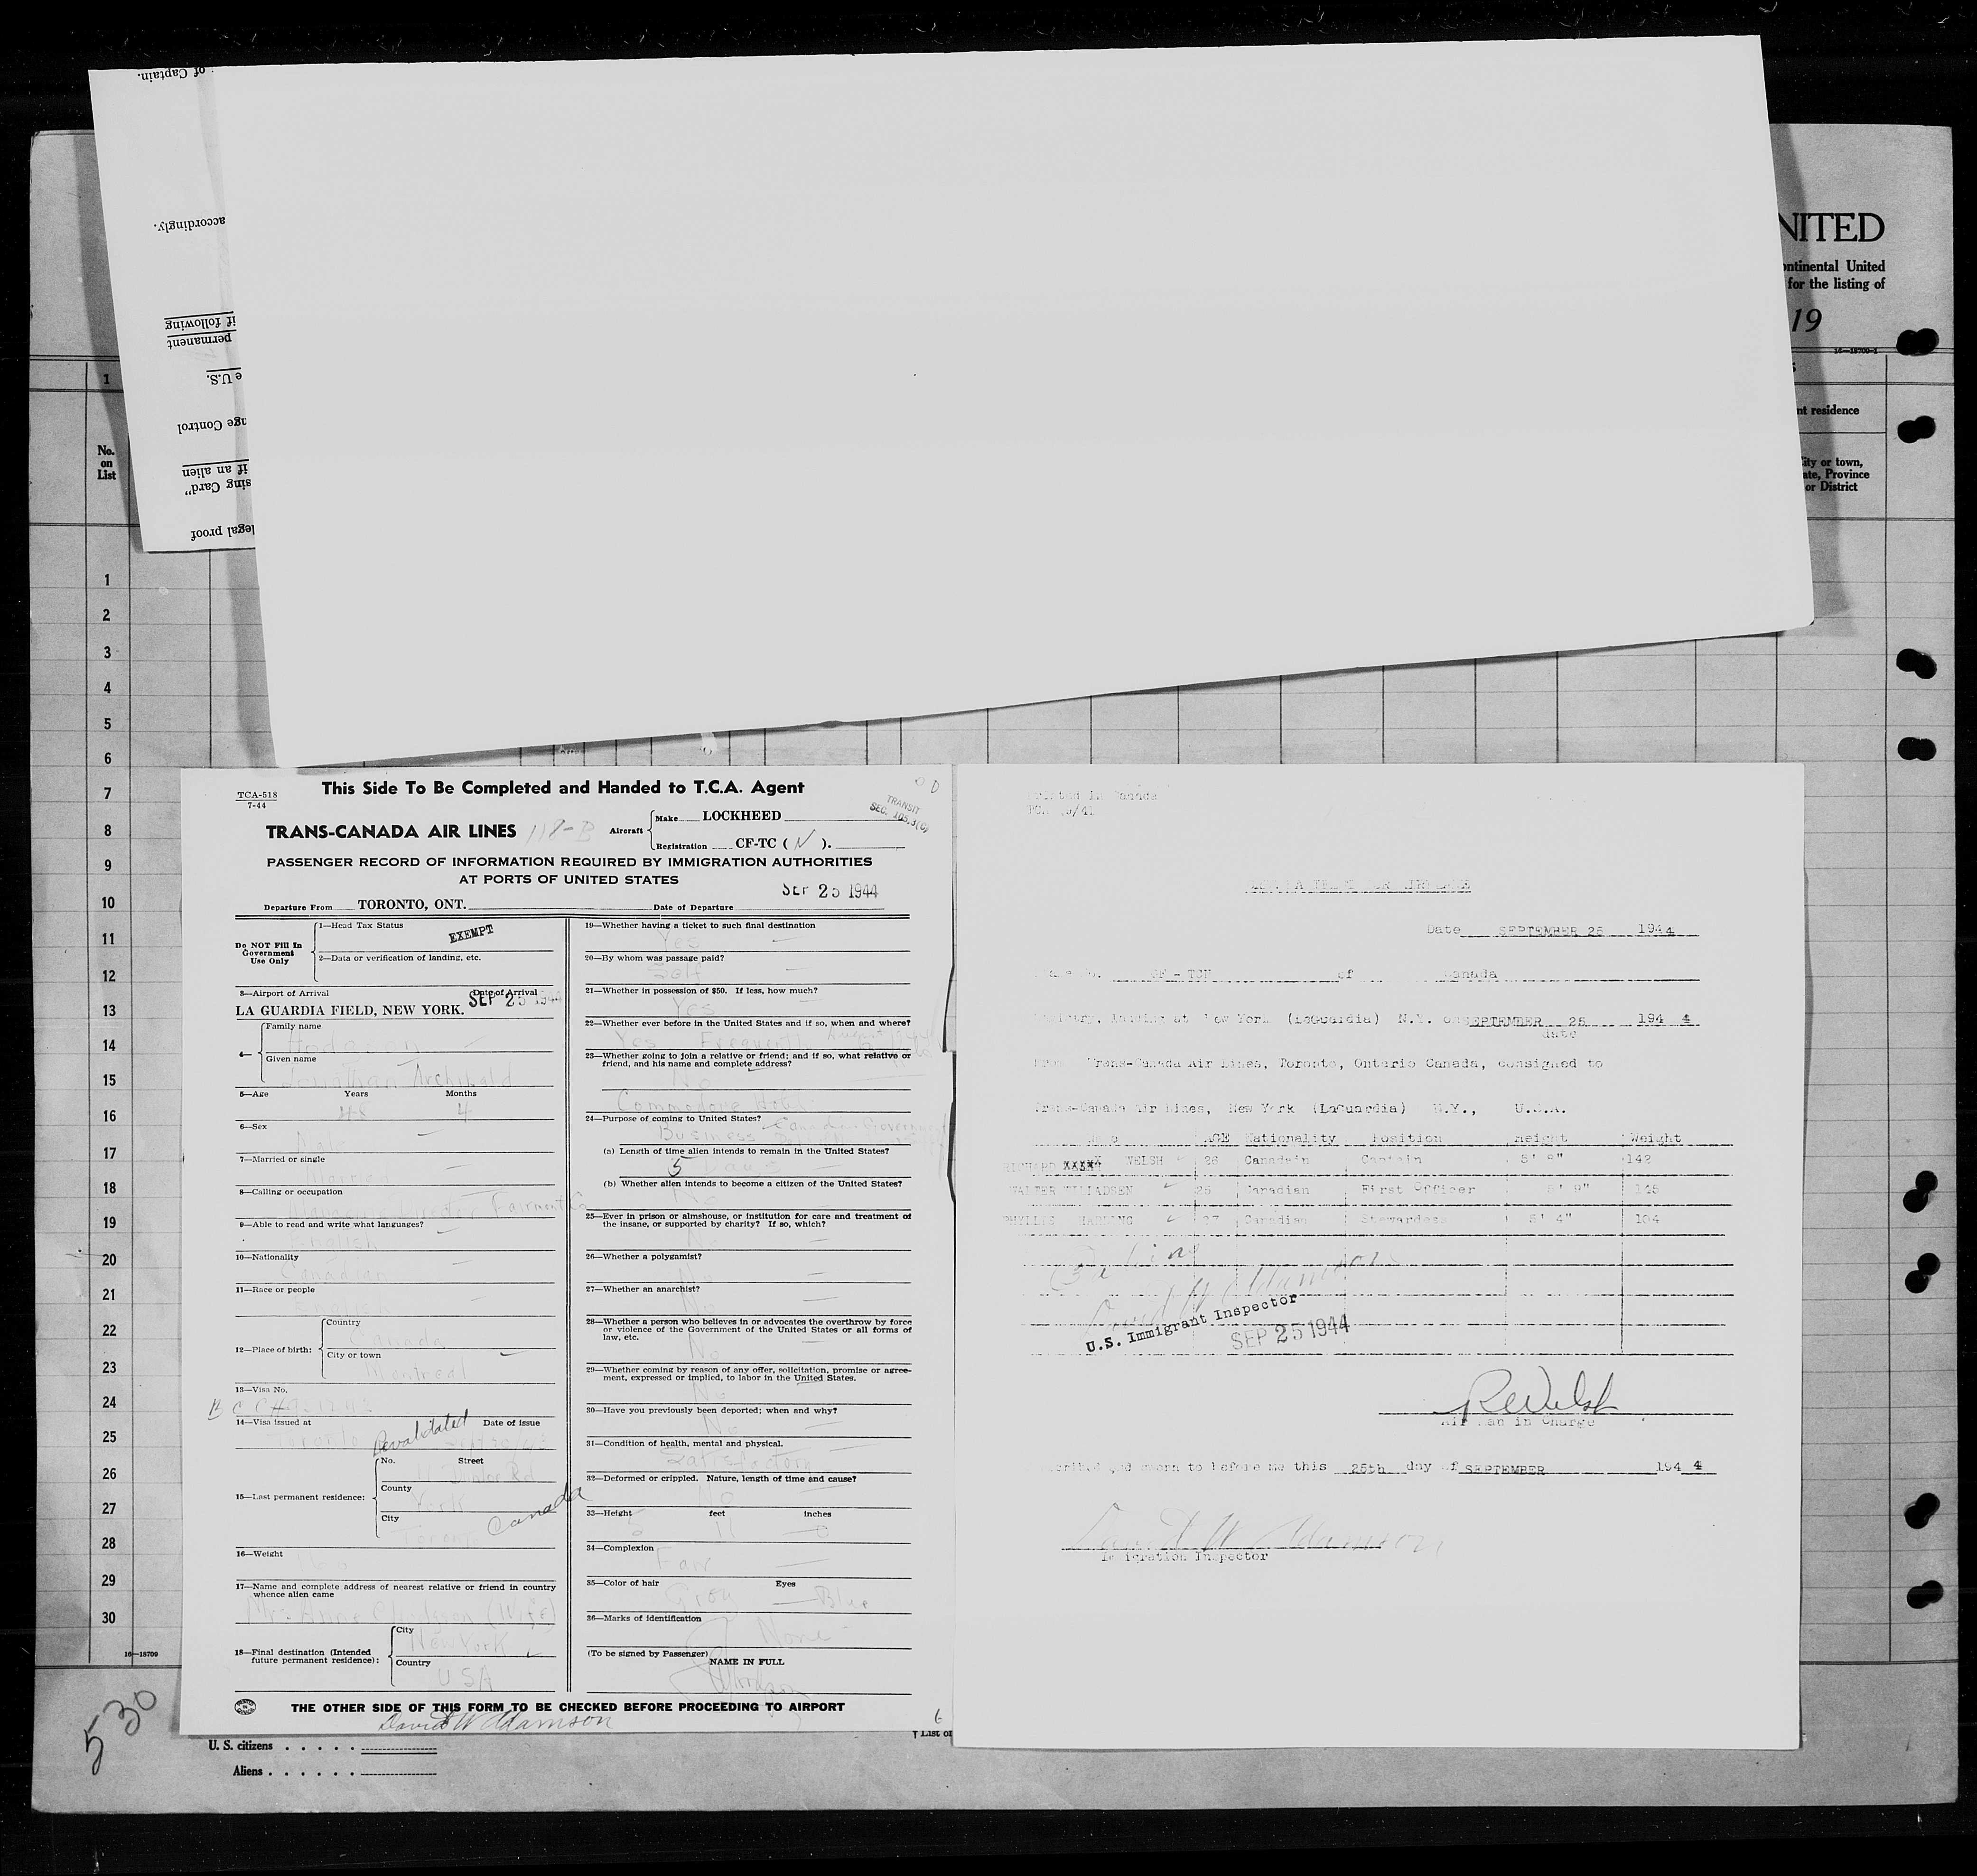 of Captain.
accordingly.
if following
permanent
e U.S.
nge Control
if an alien
sing Card"
legal proof
NITED
ontinental United
for the listing of
19
16—18709-1
1
nt residence
No.
on
List
ity or town,
ate, Province
or District
1
2
3
4
5
6
7
8
9
10
11
12
13
14
15
16
17
18
19
20
21
22
23
24
25
26
27
28
29
30
16—18709
530
TCA-518
7-44
This Side To Be Completed and Handed to T.C.A. Agent
TRANS-CANADA AIR LINES 118-B
Aircraft
Make LOCKHEED
Registration CF-TC ( N ).
TRANSIT
SEC. 105.3(C)
PASSENGER RECORD OF INFORMATION REQUIRED BY IMMIGRATION AUTHORITIES
AT PORTS OF UNITED STATES
SEP 25 1944
Departure From TORONTO, ONT. Date of Departure
Do NOT Fill In
Government
Use Only
1—Head Tax Status
EXEMPT
2—Data or verification of landing, etc.
3—Airport of Arrival Date of Arrival
LA GUARDIA FIELD, NEW YORK. SEP 25 1944
4—
Family name
Hodgson
Given name
Jonathan Archibald
5—Age Years Months
48 4
6—Sex
Male
7—Married or single
Married
8—Calling or occupation
Managing Director Fairmont Co
9—Able to read and write what languages?
English
10—Nationality
Canadian
11—Race or people
English
12—Place of birth:
Country
Canada
City or town
Montreal
13—Visa No.
14—Visa issued at Revalidated Date of issue
Toronto
15—Last permanent residence:
No. Street
Rd
County
York
City
Toronto Canada
16—Weight
17—Name and complete address of nearest relative or friend in country
whence alien came
Mrs Anne (Wife)
18—Final destination (Intended
future permanent residence):
City
New York
Country
USA
19—Whether having a ticket to such final destination
Yes
20—By whom was passage paid?
Self
21—Whether in possession of $50. If less, how much?
Yes
22—Whether ever before in the United States and if so, when and where?
Yes Frequently August
23—Whether going to join a relative or friend; and if so, what relative or
friend, and his name and complete address?
No
Commodore Hotel
24—Purpose of coming to United States?
Business Canadian Government
(a) Length of time alien intends to remain in the United States?
5 Days
(b) Whether alien intends to become a citizen of the United States?
No
25—Ever in prison or almshouse, or institution for care and treatment of
the insane, or supported by charity? If so, which?
No
26—Whether a polygamist?
No
27—Whether an anarchist?
No
28—Whether a person who believes in or advocates the overthrow by force
or violence of the Government of the United States or all forms of
law, etc.
No
29—Whether coming by reason of any offer, solicitation, promise or agree-
ment, expressed or implied, to labor in the United States.
No
30—Have you previously been deported; when and why?
No
31—Condition of health, mental and physical.
Satisfactory
32—Deformed or crippled. Nature, length of time and cause?
No
33—Height feet inches
5 11
34—Complexion
Fair
35—Color of hair Eyes
Grey Blue
36—Marks of identification
None
(To be signed by Passenger)
NAME IN FULL
THE OTHER SIDE OF THIS FORM TO BE CHECKED BEFORE PROCEEDING TO AIRPORT
David W Adamson
U. S. citizens
Aliens
† List of
Printed in Canada
Date SEPTEMBER 25 1944
CF - TCN of Canada
landing at New York (LaGuardia) N.Y. on SEPTEMBER 25 194 4
date
From Trans-Canada Air Lines, Toronto, Ontario Canada, consigned to
Trans-Canada Air Lines, New York (LaGuardia) N.Y., U.S.A.
Name AGE Nationality Position Height Weight
RICHARD XXXXX WELSH 26 Canadain Captain 5' 8" 142
WALTER 25 Canadian First Officer 5' 9" 145
PHYLLIS HARDING 27 Canadian Stewardess 5' 4" 104
David W Adamson
U.S. Immigrant Inspector
SEP 25 1944
R Welsh
Air Man in Charge
Subscribed and sworn to before me this 25th day of SEPTEMBER 194 4
David W Adamson
Immigration Inspector